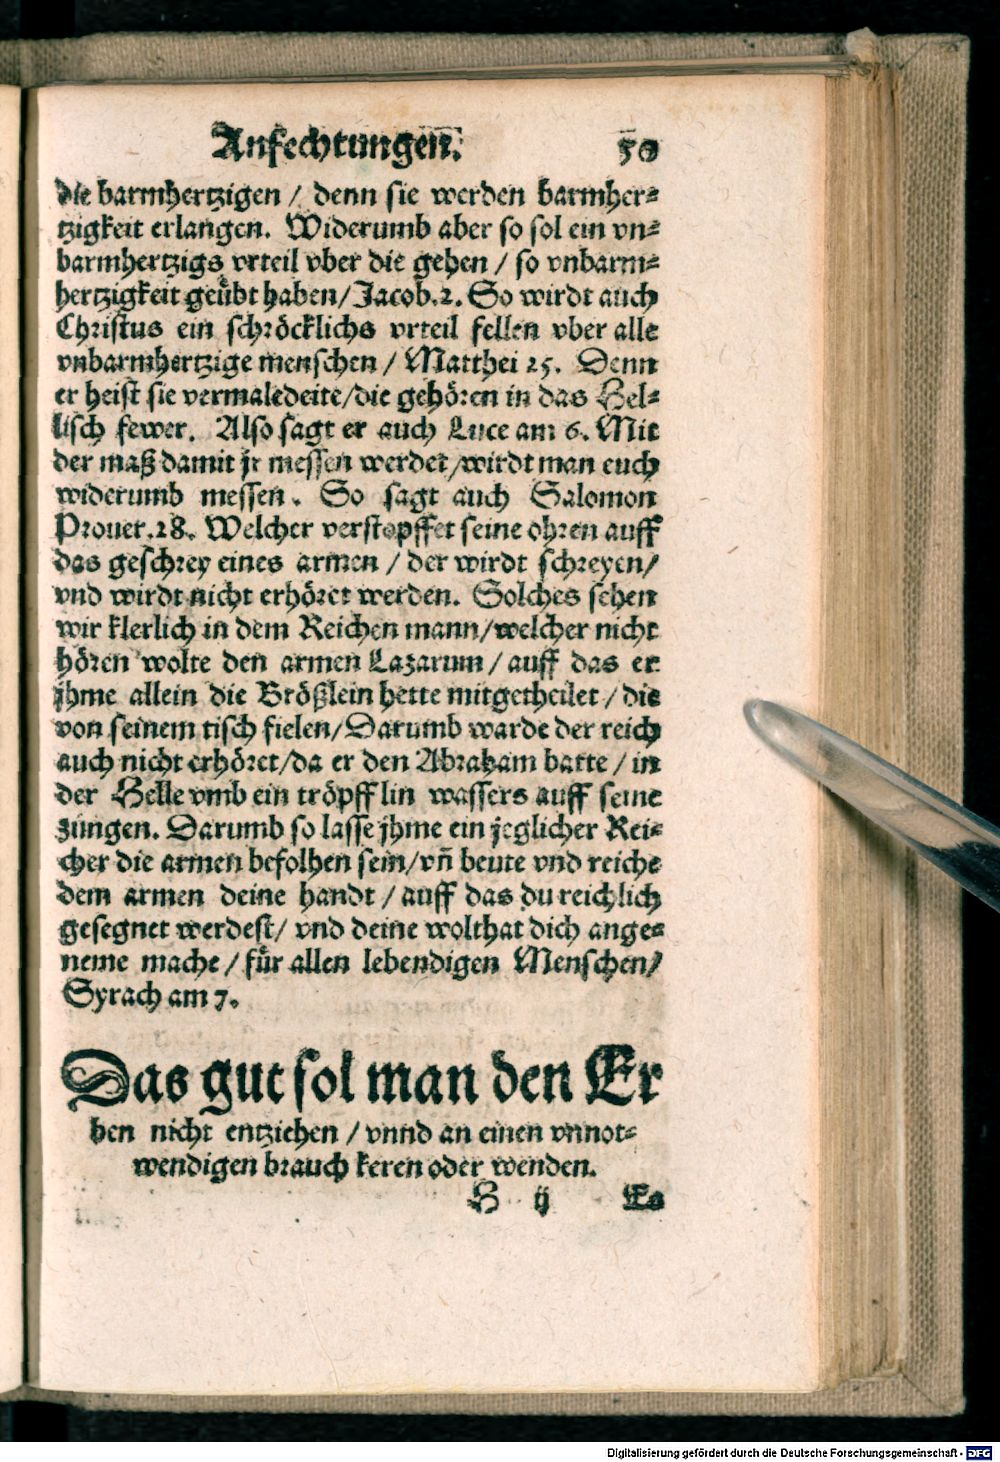 Anfechtungen. 50
die barmhertzigen / denn sie werden barmher⸗
tzigkeit erlangen. Widerumb aber so sol ein vn⸗
barmhertzigs vrteil vber die gehen / so vnbarm⸗
hertzigkeit geübt haben/ Jacob.2. So wirdt auch
Christus ein schröcklichs vrteil fellen vber alle
vnbarmhertzige menschen / Matthei 25. Denn
er heist sie vermaledeite/die gehören in das Hel⸗
lisch fewer. Also sagt er auch Luce am 6. Mit
der maß damit jr messen werdet/wirdt man euch
widerumb messen. So sagt auch Salomon
Prouer.28. Welcher verstopffet seine ohren auff
das geschrey eines armen / der wirdt schreyen/
vnd wirdt nicht erhöret werden. Solches sehen
wir klerlich in dem Reichen mann/welcher nicht
hören wolte den armen Lazarum / auff das er
jhme allein die Brößlein hette mitgetheilet / die
von seinem tisch fielen/Darumb warde der reich
auch nicht erhöret/da er den Abraham batte / in
der Helle vmb ein tröpfflin wassers auff seine
zungen. Darumb so lasse jhme ein jeglicher Rei⸗
cher die armen befolhen sein/vn̄ beute vnd reiche
dem armen deine handt / auff das du reichlich
gesegnet werdest/ vnd deine wolthat dich ange⸗
neme mache / für allen lebendigen Menschen/
Syrach am 7.
Das gut sol man den Er
ben nicht entziehen / vnnd an einen vnnot⸗
wendigen brauch keren oder wenden.
H ij Es
Digitalisierung gefördert durch die Deutsche Forschungsgemeinschaft - DFG